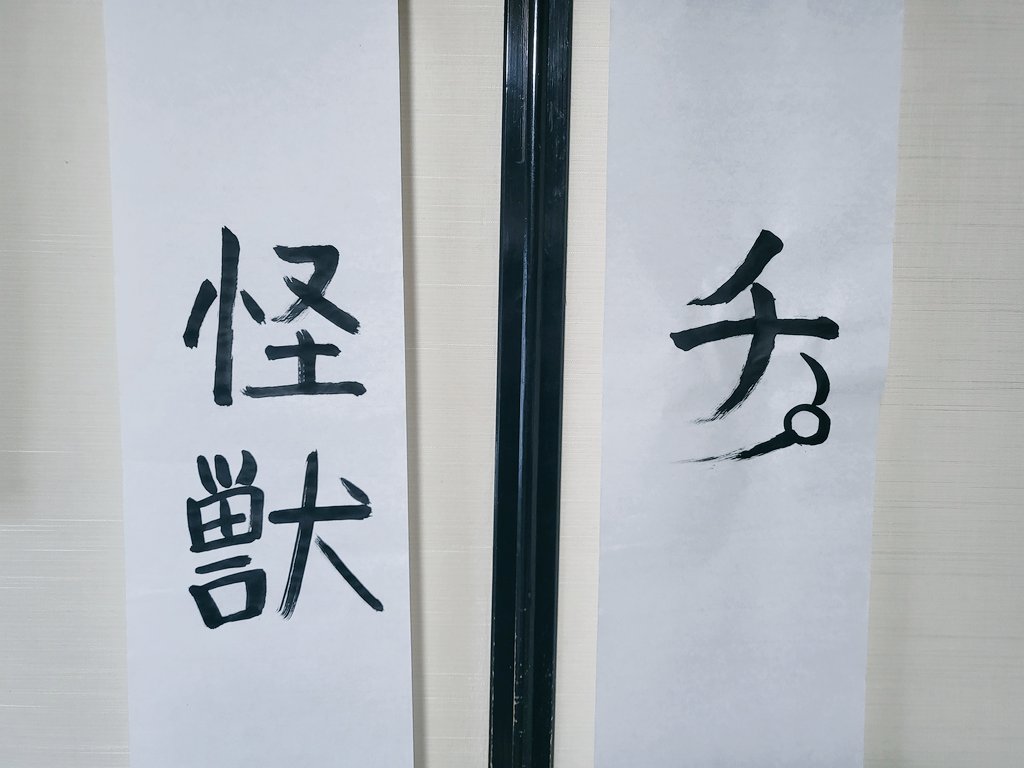 チ。
怪獣